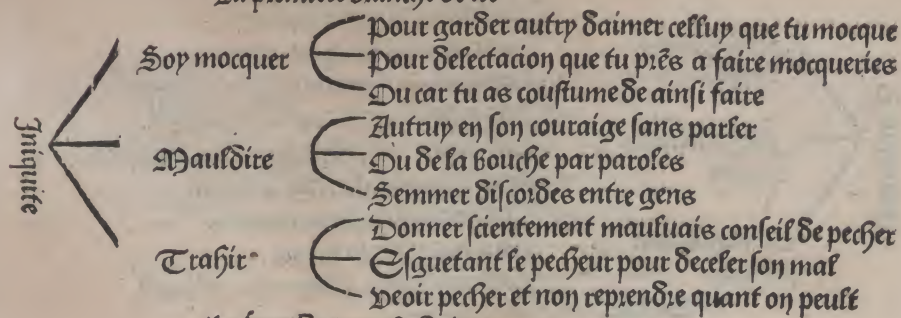 Iniquite
Soy mocquer
Pour garder autry daimer celluy que tu mocque
Pour delectacion que tu prẽs a faire mocqueries
Ou car tu as coustume de ainsi faire
Mauldire
Autruy en son couraige sans parler
Ou de la bouche par paroles
Semmer discordes entre gens
Trahir
Donner scientement mauluais conseil de pecher
Esguetant le pecheur pour deceler son mal
Veoir pecher et non reprendre quant on peult